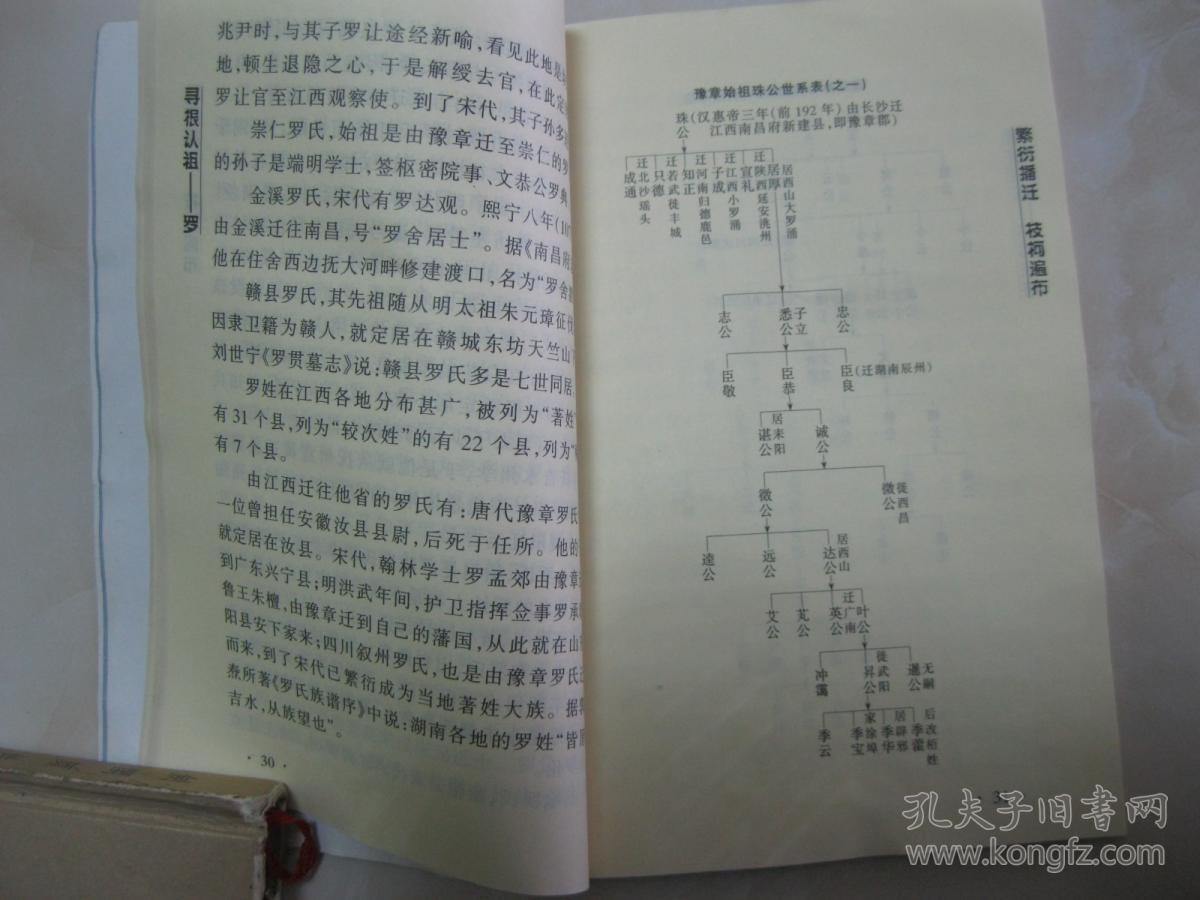 兆尹时，与其子罗让途经新喻，看见此地是
地，顿生退隐之心，于是解绶去官，在此定
罗让官至江西观察使。到了宋代，其子孙多
崇仁罗氏，始祖是由豫章迁至崇仁的罗
的孙子是端明学士，签枢密院事、文恭公罗典
金溪罗氏，宋代有罗达观。熙宁八年(10
由金溪迁往南昌，号“罗舍居士”。据《南昌府
他在住舍西边抚大河畔修建渡口，名为“罗舍
赣县罗氏，其先祖随从明太祖朱元璋征
因隶卫籍为赣人，就定居在赣城东坊天竺山
刘世宁《罗贯墓志》说：赣县罗氏多是七世同居
罗姓在江西各地分布甚广，被列为“著姓”
有31个县，列为“较次姓”的有22个县，列为“
有7个县。
由江西迁往他省的罗氏有：唐代豫章罗氏
一位曾担任安徽汝县县尉，后死于任所。他的
就定居在汝县。宋代，翰林学士罗孟郊由豫章
到广东兴宁县；明洪武年间，护卫指挥佥事罗承
鲁王朱檀，由豫章迁到自己的藩国，从此就在山
阳县安下家来；四川叙州罗氏，也是由豫章罗氏
而来，到了宋代已繁衍成为当地著姓大族。据
焘所著《罗氏族谱序》中说：湖南各地的罗姓“皆
吉水，从族望也”。
·30·
寻根认祖——罗
豫章始祖珠公世系表(之一)
珠公(汉惠帝三年(前192年)由长沙迁
江西南昌府新建县，即豫章郡)
成通
迁北沙瑶头
只德
迁若武徙丰城
知正
迁河南归德鹿邑
子成
迁江西小罗涌
宣礼
迁陕西延安洮州
居厚
居西山大罗涌
志公
悉公 子立
忠公
臣敬
臣恭
臣良(迁湖南辰州)
谌公 居耒阳
诚公
微公
微公 徙西昌
逵公
远公
达公 居西山
艾公
芄公
英公
迁广南
叶公
冲霭
昇公 徙武阳
暹公 无嗣
季云
季宝
家涂埠
季华
居辟邪
季藿
后改栢姓
繁衍播迁 枝柯遍布
孔夫子旧书网
www.kongfz.com